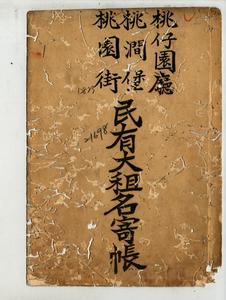 桃仔園廳
桃澗堡
桃園街
民有大租名寄帳
21698